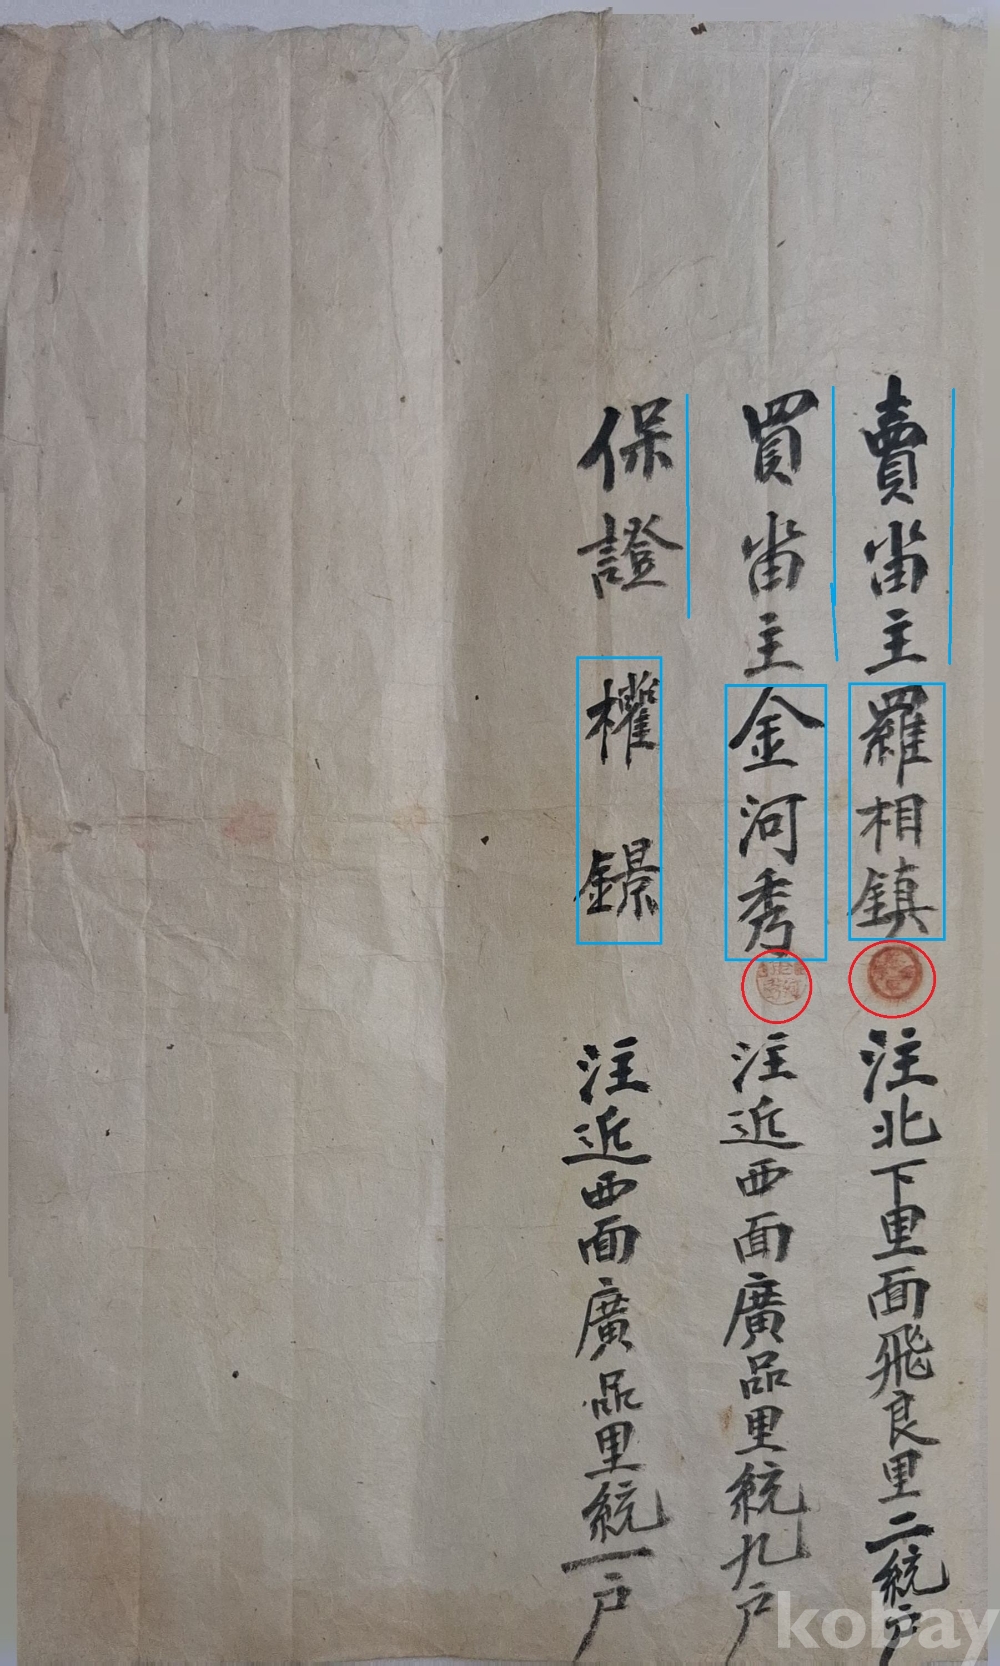 賣畓主羅相鎮 注北下里面飛良里二統戶
買畓主金河秀 注近西面廣品里統九戶
保證 權鐛 注近西面廣品里統一戶
kobay